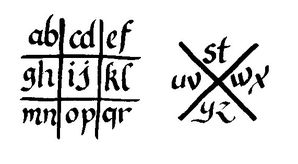 ab cd ef
gh ij kl
mn op qr
st
uv wx
yz